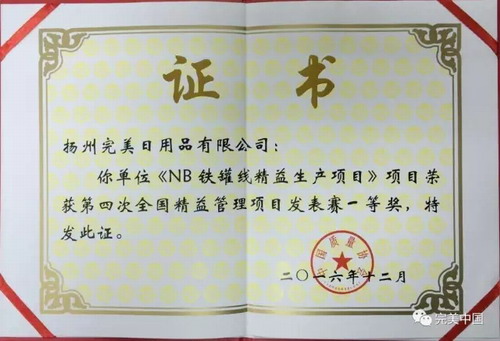 证 书
扬州完美日用品有限公司：
你单位《NB 铁罐线精益生产项目》项目荣
获第四次全国精益管理项目发表赛一等奖，特
发此证。
中国质量协会
二〇一六年十二月
完美中国